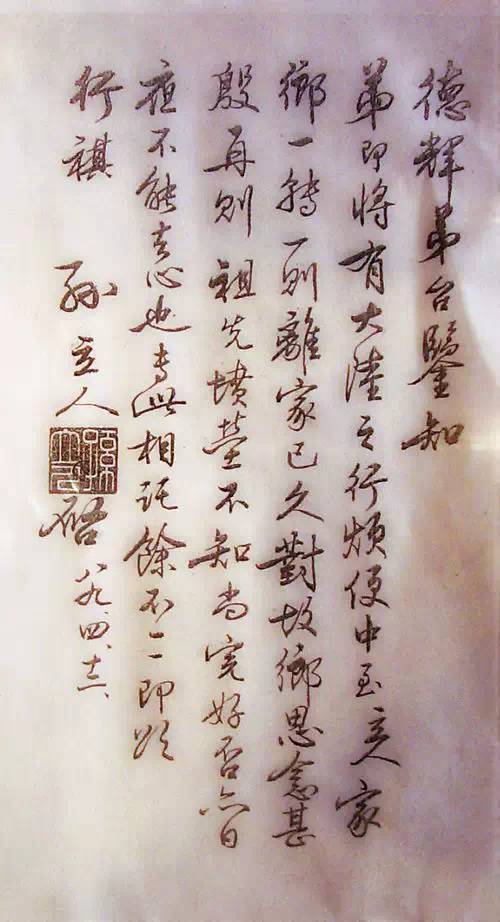 德輝弟台鑒知
弟即將有大陸之行煩便中至立人家
鄉一轉一則離家已久對故鄉思念甚
殷再則祖先墳塋不知尚完好否亦日
夜不能去心也專此相託餘不一一即頌
行祺 孫立人 啓 八九、四、